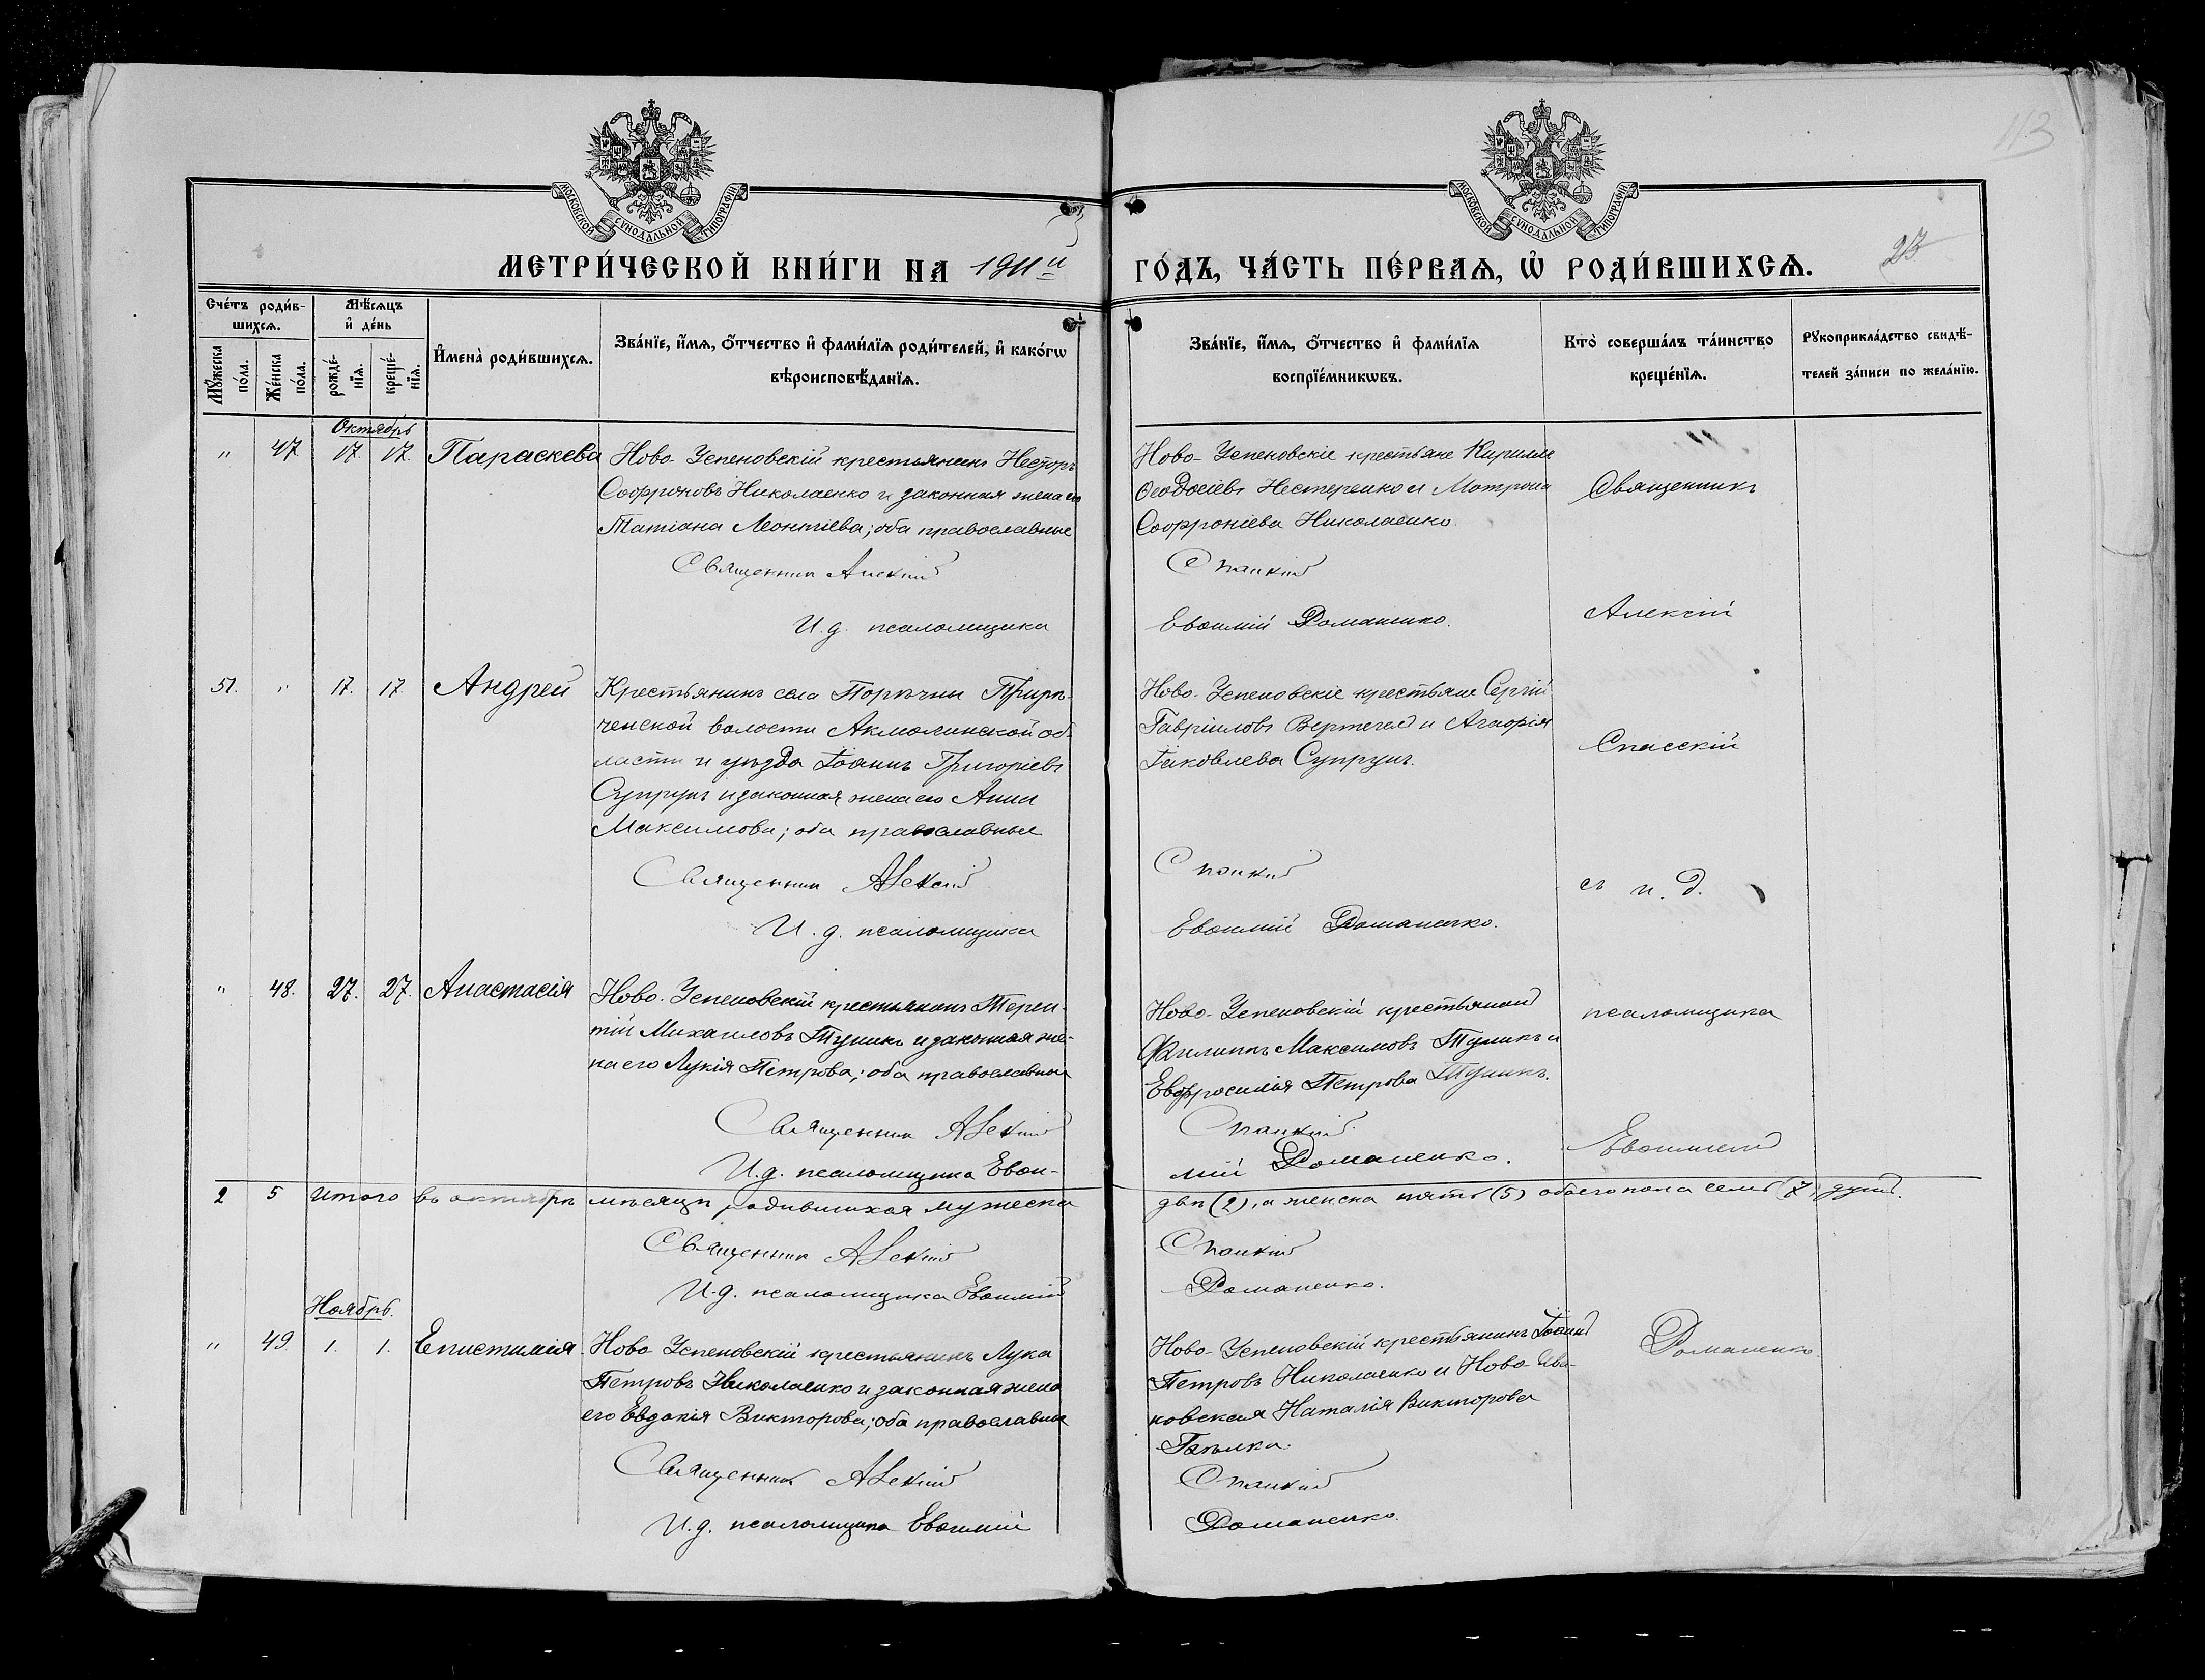 113
МОСКОВСКОЙ СѴНОДАЛЬНОЙ ТИПОГРАФІИ
МОСКОВСКОЙ СѴНОДАЛЬНОЙ ТИПОГРАФІИ
МЕТРИ́ЧЕСКОЙ КНИ́ГИ НА 1911й ГО́ДЪ, ЧА́СТЬ ПЕ́РВАѦ, Ѡ҆ РОДИ́ВШИХСѦ.
23
Сче́тъ роди́в-
шихсѧ.
Мꙋ́жеска по́ла.
Же́нска по́ла.
Мѣ́сяцъ
и҆ де́нь
рожде́-нїѧ.
креще́-нїѧ.
И҆мена̀ роди́вшихсѧ.
Зва́нїе, и҆́мѧ, ѻ҆́тчество и҆ фами́лїѧ роди́телей, и҆ како́гѡ
вѣроисповѣ́данїѧ.
Зва́нїе, и҆́мѧ, ѻ҆́тчество и҆ фами́лїѧ
воспрїе́мникѡвъ.
Кто̀ соверша́лъ та́инство
креще́нїѧ.
Рꙋкоприкла́дство свидѣ́-
телей за́писи по жела́нїю.
Октябрь
" 47 17. 17. Параскева
Ново-Успеновскій крестьянинъ Несторъ
Софроновъ Николаенко и законная жена его
Татіана Леонтіева; оба православные
Священник Алексій
И. д. псаломщика
Ново-Успеновскіе крестьяне Кириллъ
Ѳеодосіевъ Нестеренко и Матрона
Софроніева Николаенко.
Спасскій
Евѳимій Романенко.
51. " 17. 17. Андрей
Крестьянинъ села Порѣчни Прирѣ-
ченской волости Акмолинской об-
ласти и уѣзда Іоаннъ Григоріевъ
Супрунъ и законная жена его Анна
Максимова; оба православные
Священник Алексій
И. д. псаломщика
Ново-Успеновскіе крестьяне Сергій
Гавріиловъ Вертегел и Агафія
Іаковлева Супрунъ.
Спасскій
Евѳимій Романенко.
" 48. 27. 27. Анастасія
Ново-Успеновскій крестьянинъ Терен-
тій Михаиловъ Тупикъ и законная же-
на его Лукія Петрова; оба православные
Священник Алексій
И. д. псаломщика Евѳи-
Ново-Успеновскій крестьянинъ
Филиппъ Максимовъ Тупикъ и
Евфросинія Петрова Тупикъ.
Спасскій
мій Романенко.
2 5 Итого въ октябрѣ мѣсяцѣ родившихся мужеска двѣ (2), а женска пять (5) обоего пола семь (7) душъ.
Священник Алексій Спасскій
И. д. псаломщика Евѳимій Романенко.
Ноябрь.
" 49 1. 1. Епистимія.
Ново-Успеновскій крестьянинъ Лука
Петровъ Николаенко и законная жена
его Евдокія Викторова; оба православные
Священник Алексій
И. д. псаломщика Евѳимій
Ново-Успеновскій крестьянинъ Іоаннъ
Петровъ Николаенко и Ново-Ива-
новская Наталія Викторова
Спасскій
Романенко.
Священникъ
Алексій
Спасскій
съ и. д.
псаломщика
Евѳиміемъ
Романенко.